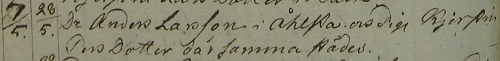 7/5. 28/5. Dr Anders Larsson i Åhlsta och Pig. Kjerstin
Pers Dotter där sammastädes.